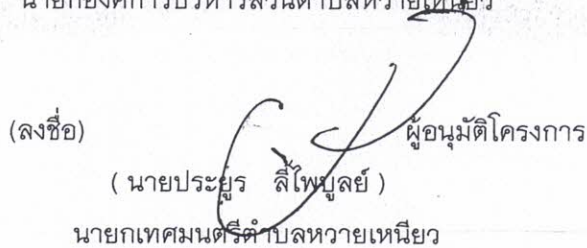 นายกองค์การบริหารส่วนตำบลหวายเหนียว
(ลงชื่อ) ผู้อนุมัติโครงการ
( นายประยูร ลี้ไพบูลย์ )
นายกเทศมนตรีตำบลหวายเหนียว